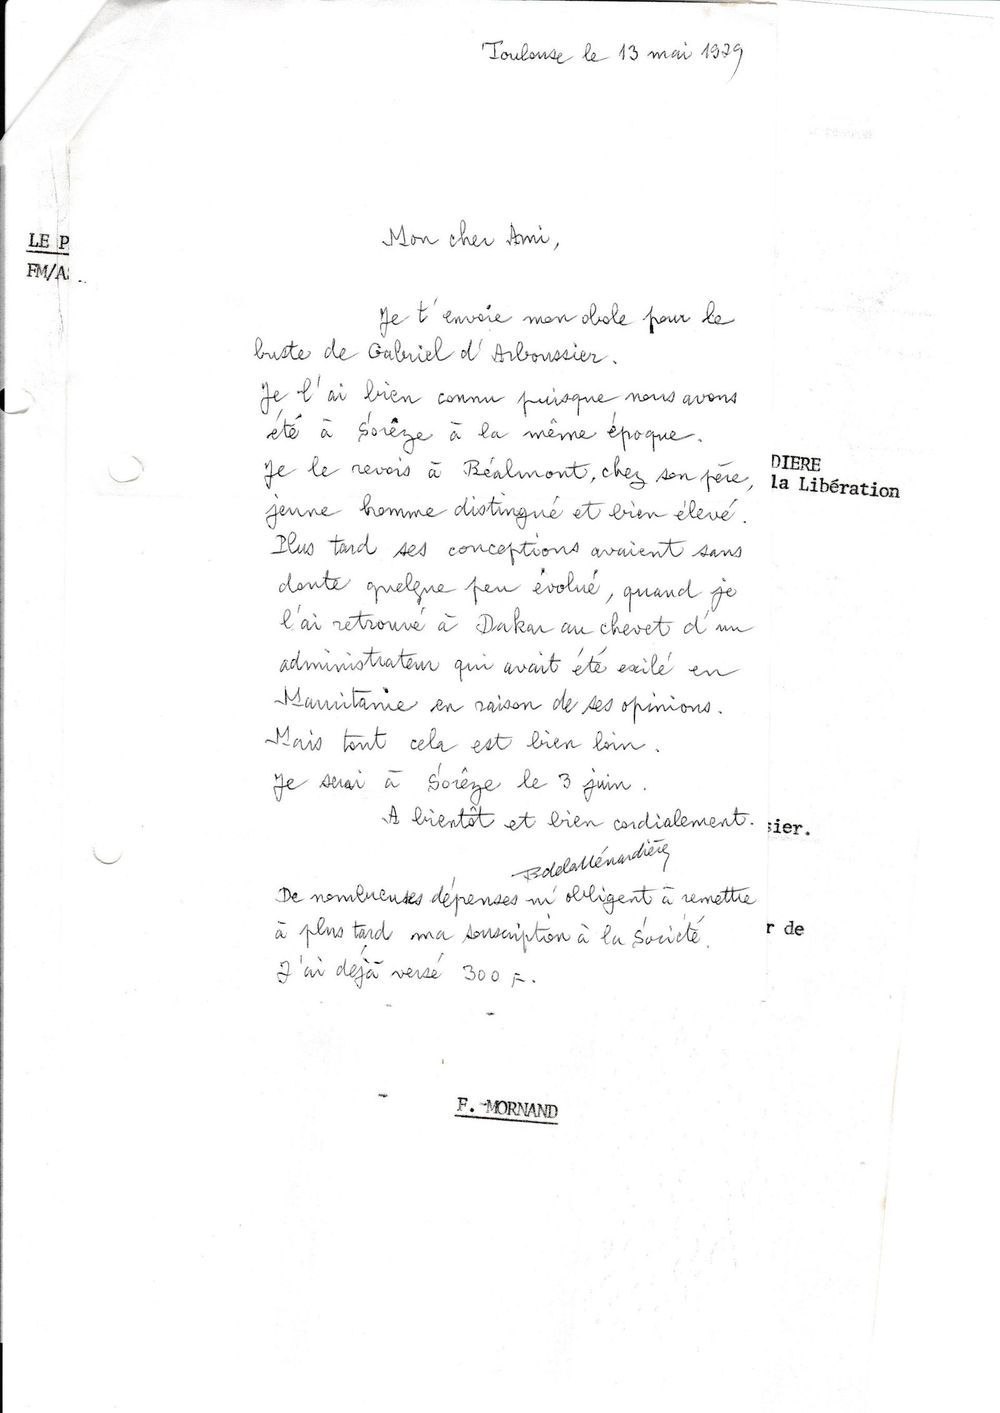 Toulouse le 13 mai 1979
Mon cher Ami,
LE P
FM/A
Je t'envoie mon obole pour le
buste de Gabriel d'Arboussier.
Je l'ai bien connu puisque nous avons
été à Sorêze à la même époque.
Je le revois à Réalmont, chez son père,
DIERE
la Libération
jeune homme distingué et bien élevé.
Plus tard ses conceptions avaient sans
doute quelque peu évolué, quand je
l'ai retrouvé à Dakar au chevet d'un
administrateur qui avait été exilé en
Mauritanie en raison de ses opinions.
Mais tout cela est bien loin.
Je serai à Sorêze le 3 juin.
A bientôt et bien cordialement.
sier.
BdelaMénardière
De nombreuses dépenses m'obligent à remettre
à plus tard ma souscription à la Société.
r de
J'ai déjà versé 300 F.
F. MORNAND